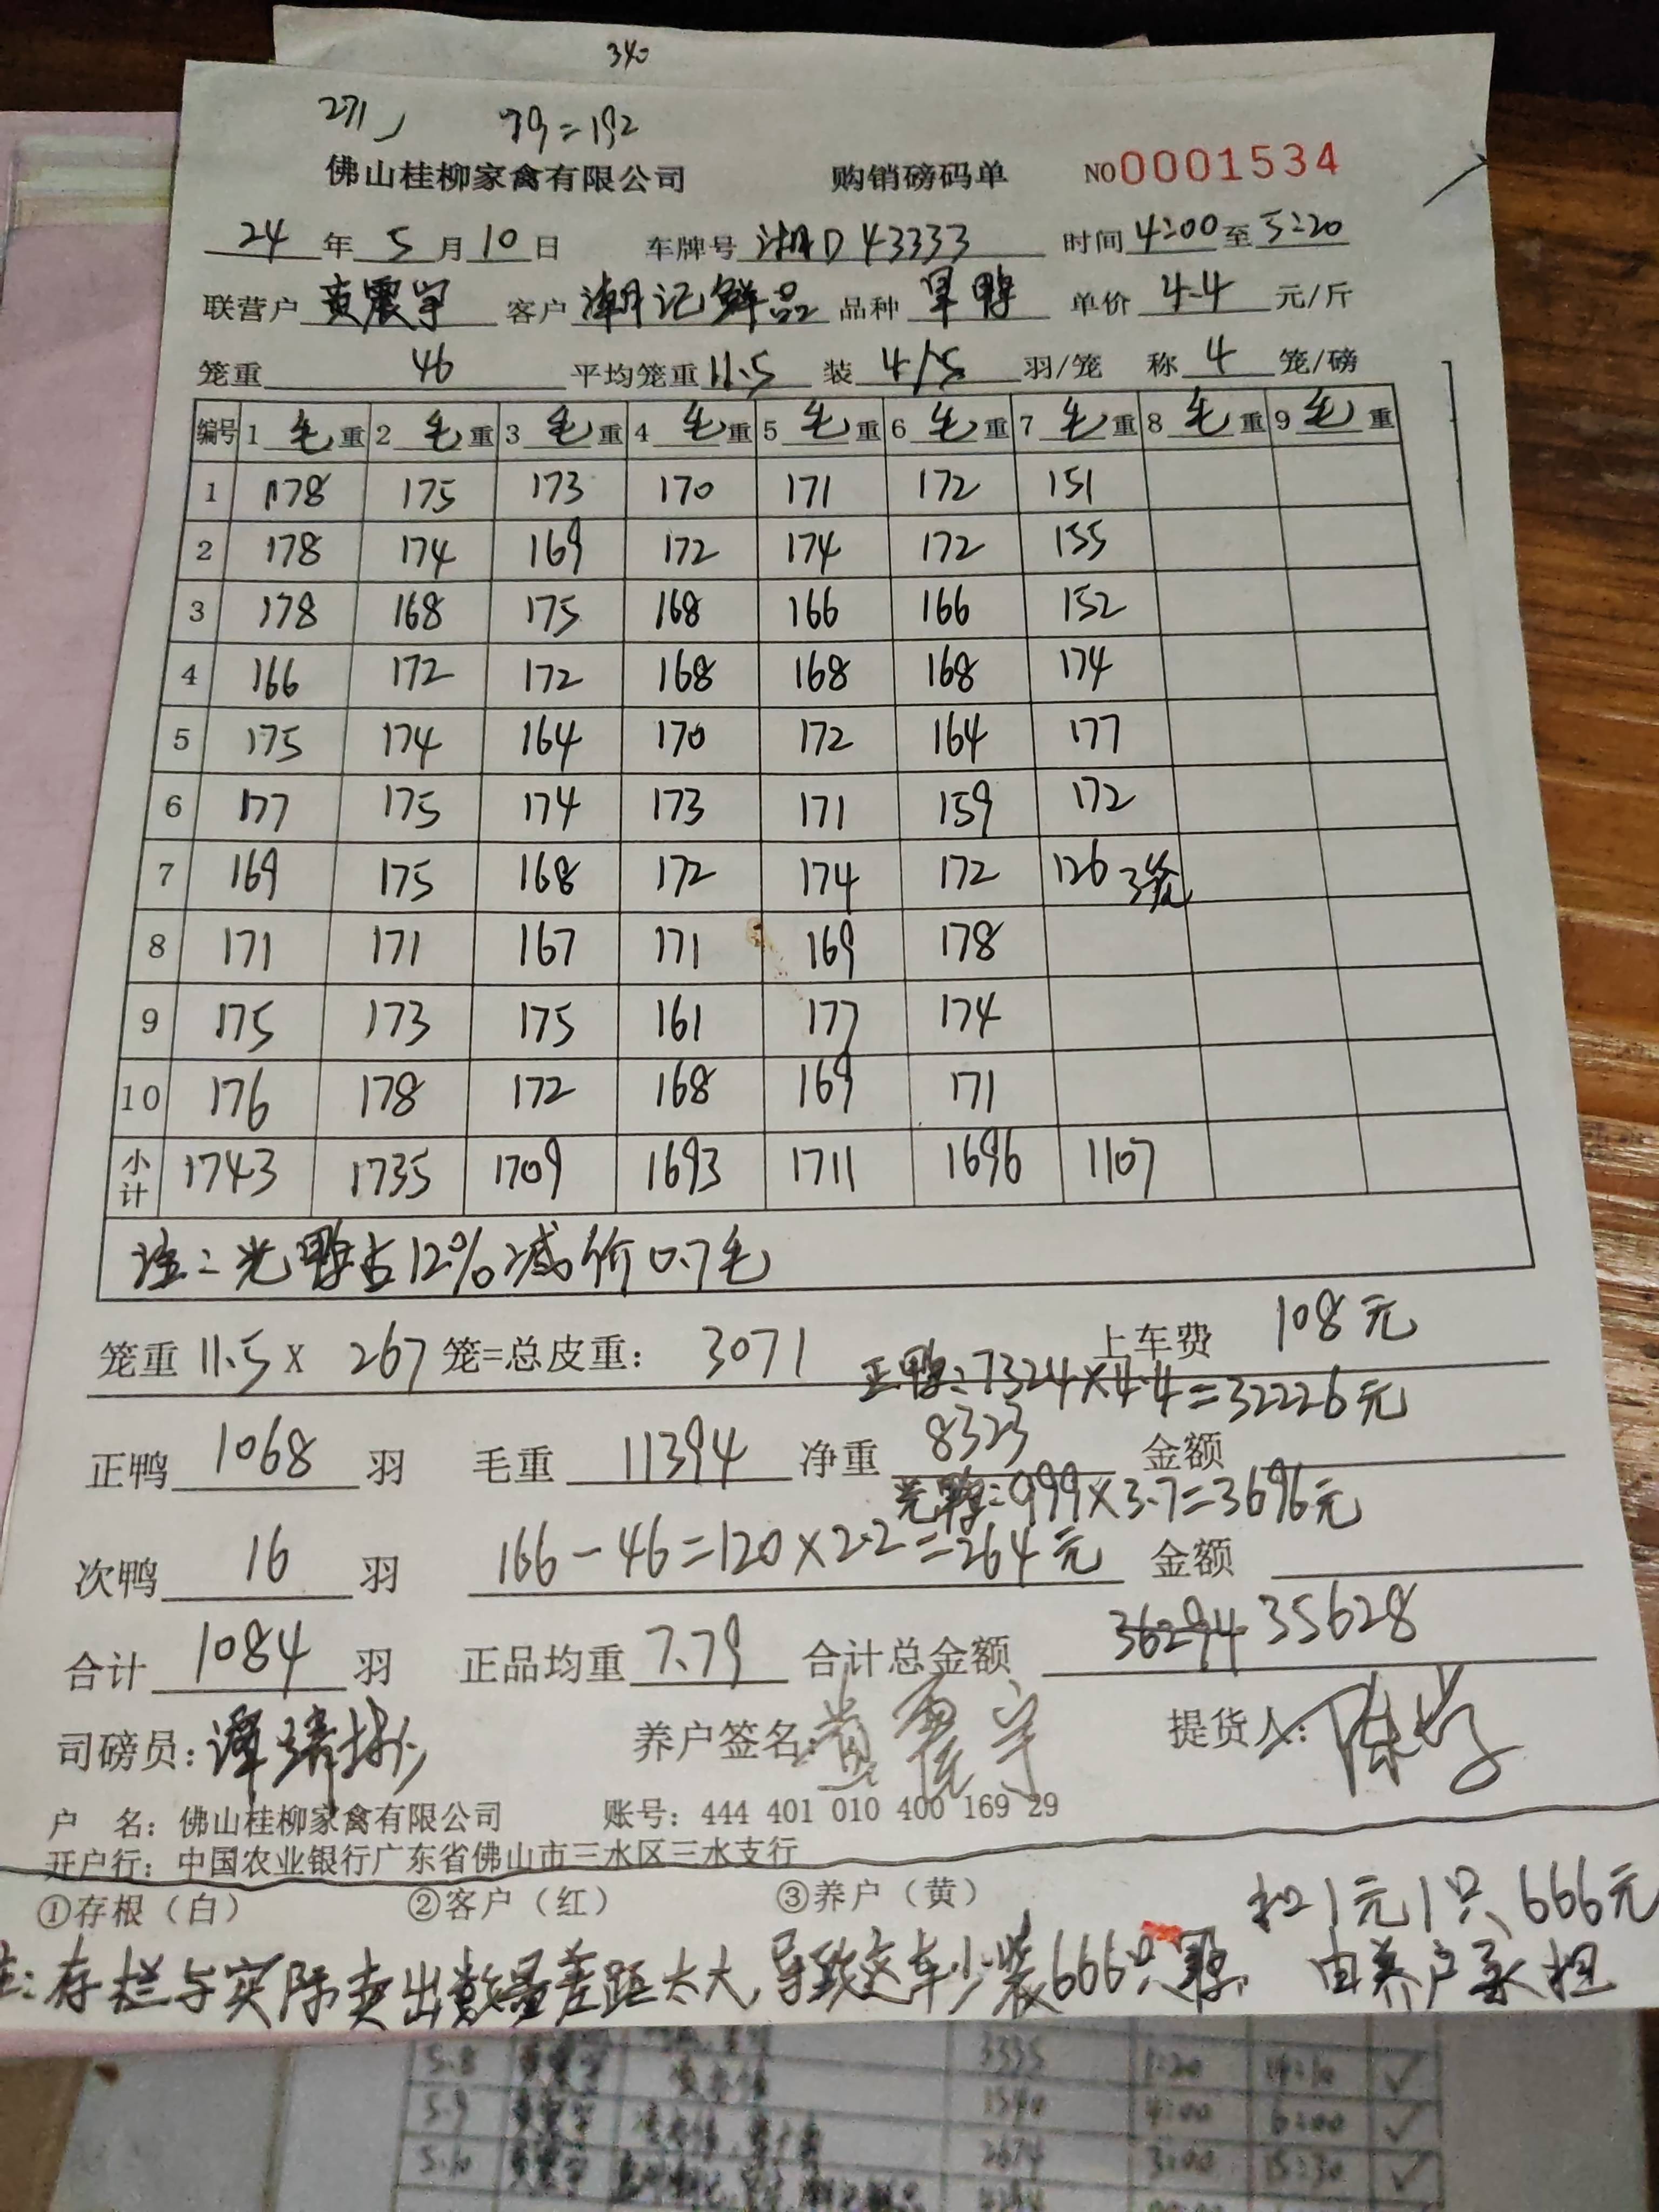 340
271 79=192
佛山桂柳家禽有限公司 购销磅码单 NO0001534
24年5月10日 车牌号 湘D43333 时间4:00至5:20
联营户 黄震宇 客户 潮记鲜品 品种 旱鸭 单价 4.4 元/斤
笼重 46 平均笼重 11.5 装 4/5 羽/笼 称 4 笼/磅
编号 1毛重 2毛重 3毛重 4毛重 5毛重 6毛重 7毛重 8毛重 9毛重
1 178 175 173 170 171 172 151
2 178 174 169 172 174 172 155
3 178 168 175 168 166 166 152
4 166 172 172 168 168 168 174
5 175 174 164 170 172 164 177
6 177 175 174 173 171 159 172
7 169 175 168 172 174 172 126 3笼
8 171 171 167 171 169 178
9 175 173 175 161 177 174
10 176 178 172 168 169 171
小计 1743 1735 1709 1693 1711 1696 1107
注:光鸭占12%减价0.7毛
笼重 11.5 x 267 笼=总皮重: 3071 上车费 108元
正鸭:7324×4.4=32226元
正鸭 1068 羽 毛重 11394 净重 8323 金额
光鸭:999×3.7=3696元
次鸭 16 羽 166-46=120×2.2=264元 金额
合计 1084 羽 正品均重 7.79 合计总金额 36294 35628
司磅员: 养户签名:黄震宇 提货人:
户 名: 佛山桂柳家禽有限公司 账号: 444 401 010 400 169 29
开户行: 中国农业银行广东省佛山市三水区三水支行
①存根(白) ②客户(红) ③养户(黄) 扣1元1只,666元
注:存栏与实际卖出数量差距太大,导致这车少装666只鸭, 由养户承担
5.8 3535 1:20 14:10 ✓
5.9 1540 4:00 6:00 ✓
5.10 2674 3:00 15:30 ✓